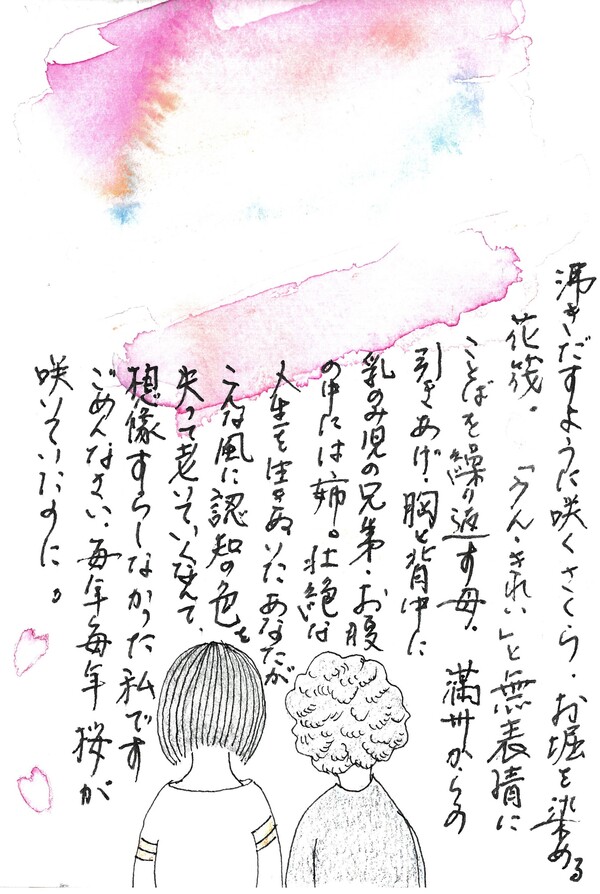 沸きだすように咲くさくら、お堀を染める
花筏。「うん、きれい」と無表情に
ことばを繰り返す母。満州からの
引きあげ、胸と背中に
乳のみ児の兄弟、お腹
の中には姉。壮絶な
人生を生きぬいたあなたが
こんな風に認知の色を
失って老いていくなんて、
想像すらしなかった私です
ごめんなさい、毎年毎年桜が
咲いていたのに。